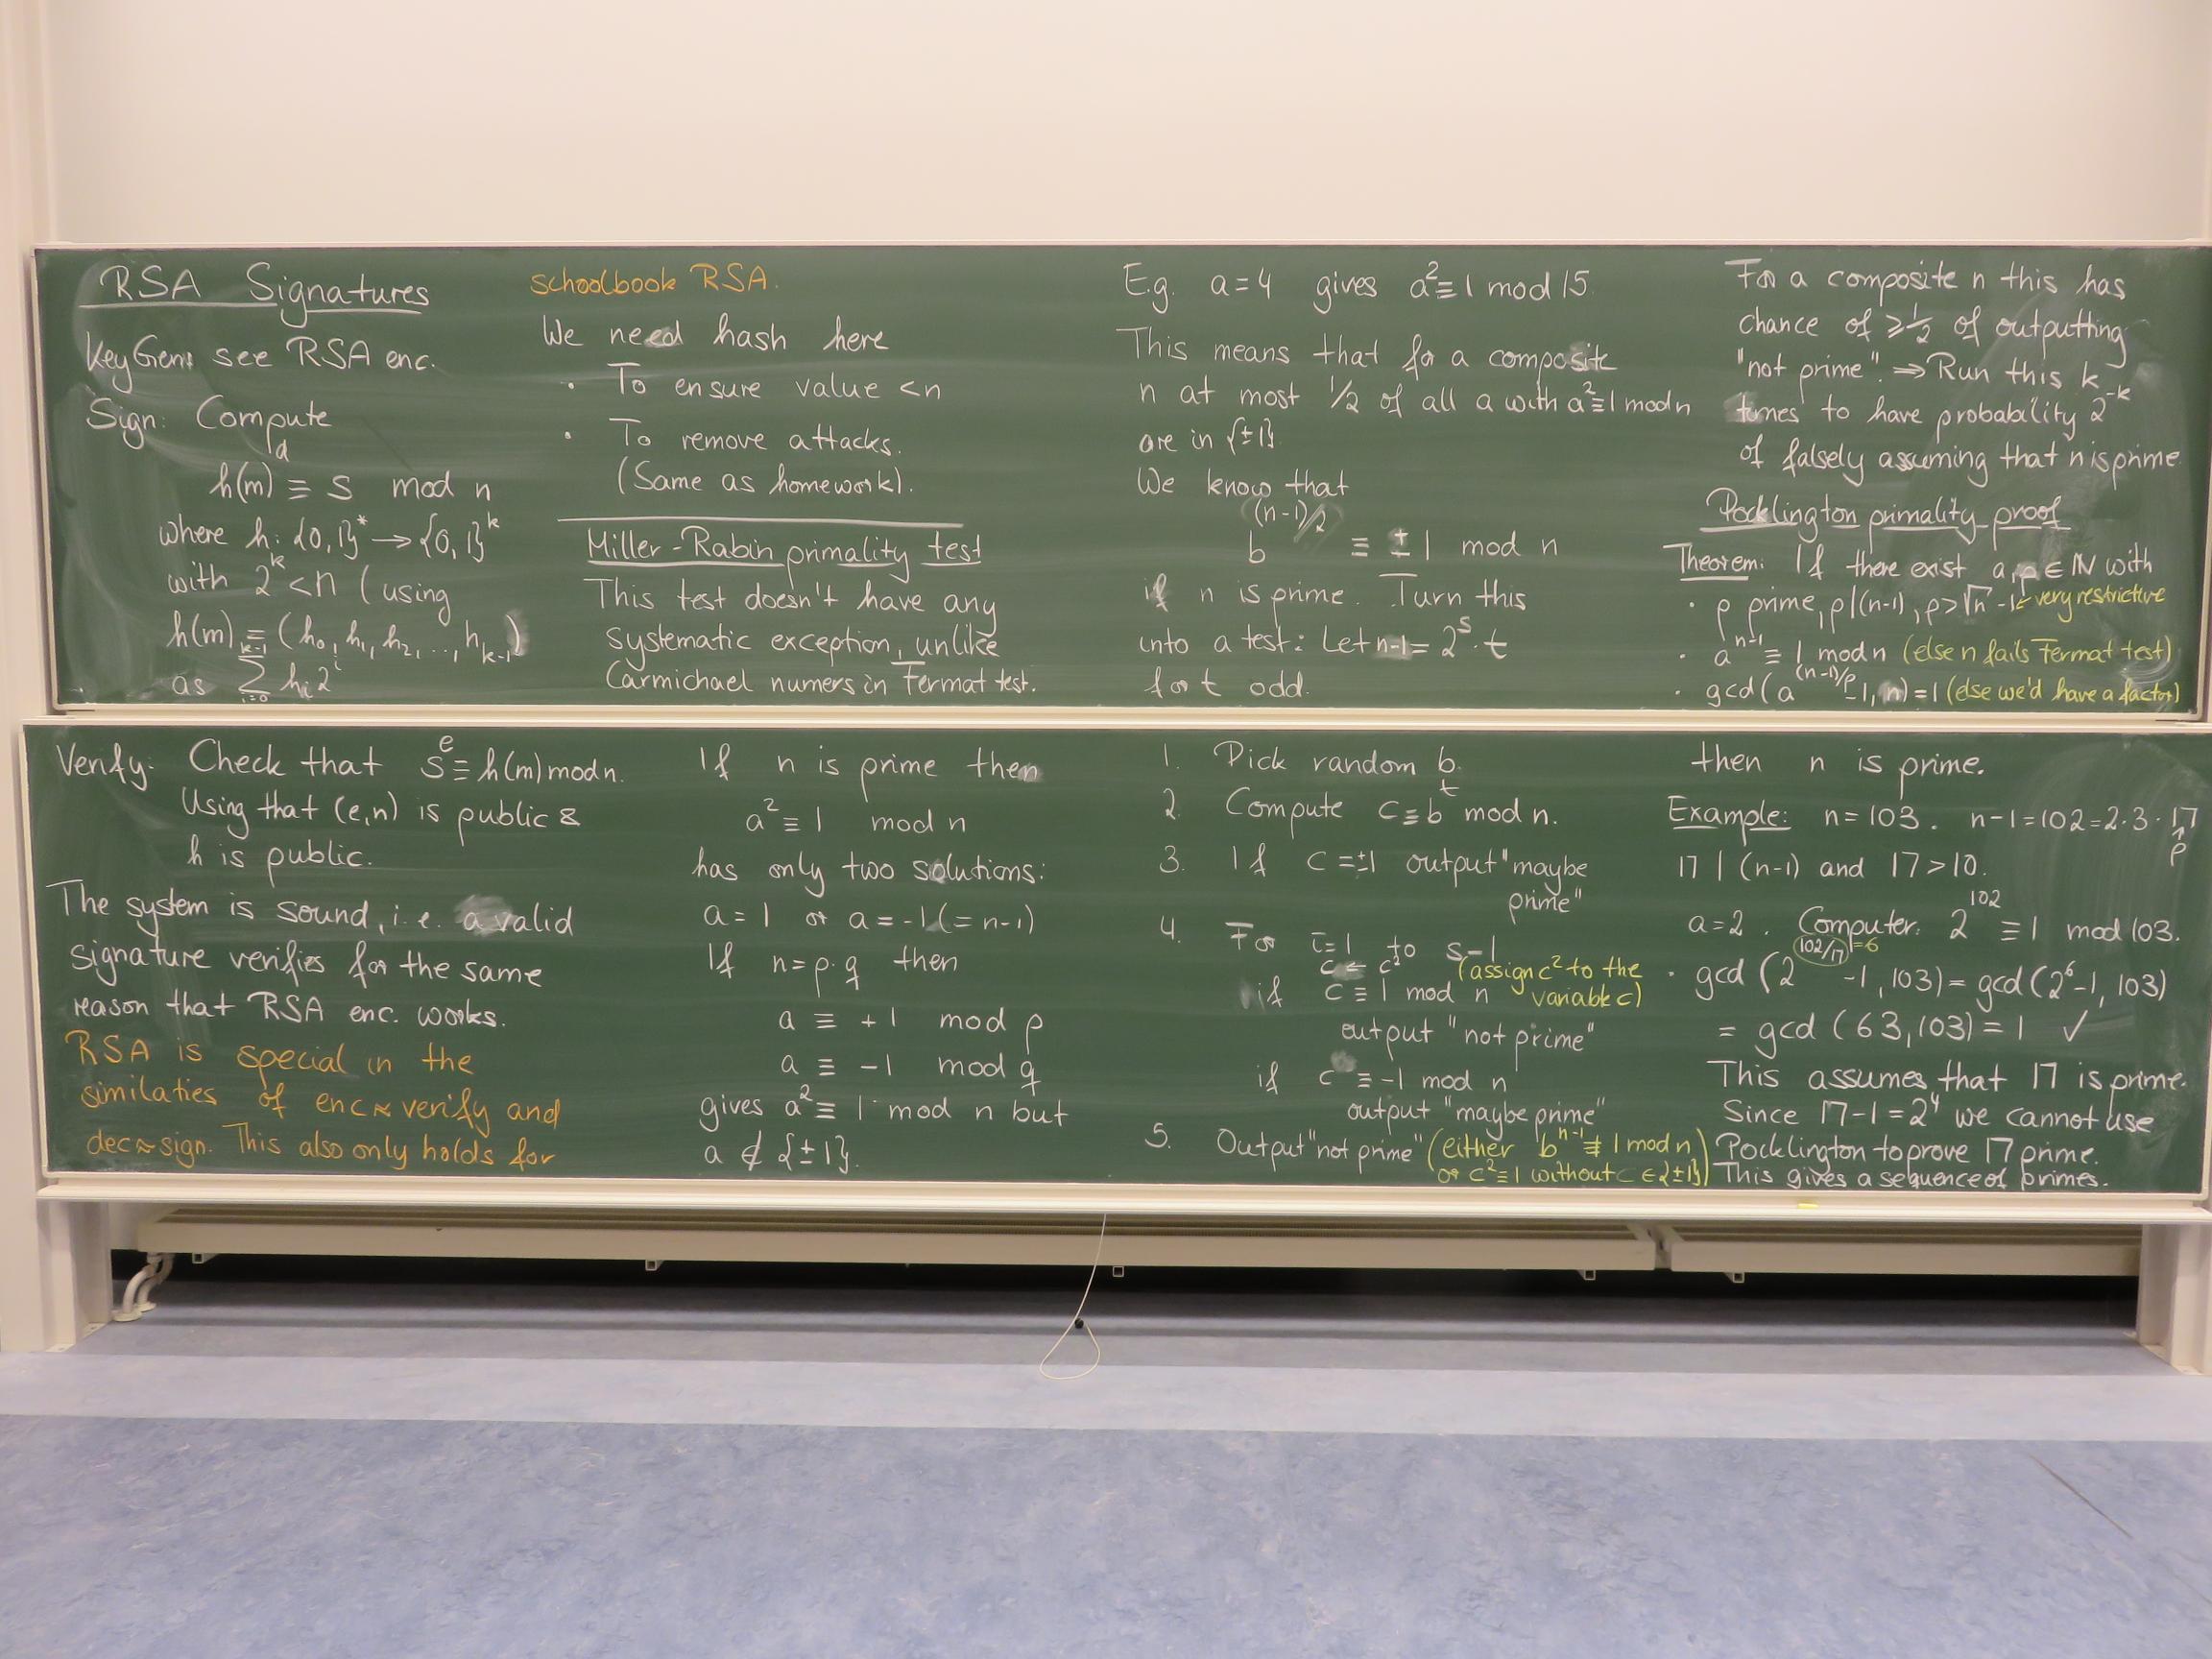 RSA Signatures
KeyGen: see RSA enc.
Sign: Compute
h(m)^d ≡ s mod n
where h: {0,1}^* → {0,1}^k
with 2^k < n (using
h(m) = (h_0, h_1, h_2, .., h_{k-1})
as ∑_{i=0}^{k-1} h_i 2^i
Verify: Check that s^e ≡ h(m) mod n.
Using that (e,n) is public &
h is public.
The system is sound, i.e. a valid
signature verifies for the same
reason that RSA enc. works.
RSA is special in the
similaties of enc ≈ verify and
dec ≈ sign. This also only holds for
schoolbook RSA.
We need hash here
· To ensure value < n
· To remove attacks.
(Same as homework).
Miller-Rabin primality test
This test doesn't have any
systematic exception, unlike
Carmichael numers in Fermat test.
If n is prime then
a^2 ≡ 1 mod n
has only two solutions:
a = 1 or a = -1 (= n-1)
If n = p·q then
a ≡ +1 mod p
a ≡ -1 mod q
gives a^2 ≡ 1 mod n but
a ∉ {±1}.
E.g. a = 4 gives a^2 ≡ 1 mod 15.
This means that for a composite
n at most 1/2 of all a with a^2 ≡ 1 mod n
are in {±1}.
We know that
b^{(n-1)/2} ≡ ±1 mod n
if n is prime. Turn this
into a test: Let n-1 = 2^s · t
for t odd.
1. Pick random b.
2. Compute c ≡ b^t mod n.
3. If c = ±1 output "maybe
prime"
4. For i=1 to s-1
c ← c^2 (assign c^2 to the
variable c)
if c ≡ 1 mod n
output "not prime"
if c ≡ -1 mod n
output "maybe prime"
5. Output "not prime" (either b^{n-1} ≢ 1 mod n
or c^2 ≡ 1 without c ∈ {±1})
For a composite n this has
chance of ≥ 1/2 of outputting
"not prime". ⇒ Run this k
times to have probability 2^{-k}
of falsely assuming that n is prime.
Pocklington primality proof
Theorem: If there exist a, p ∈ ℕ with
· p prime, p | (n-1), p > √n - 1 ← very restrictive
· a^{n-1} ≡ 1 mod n (else n fails Fermat test)
· gcd(a^{(n-1)/p} - 1, n) = 1 (else we'd have a factor)
then n is prime.
Example: n = 103. n-1 = 102 = 2·3·17
↑
p
17 | (n-1) and 17 > 10.
a = 2. Computer: 2^{102} ≡ 1 mod 103.
· gcd(2^{102/17 = 6} - 1, 103) = gcd(2^6 - 1, 103)
= gcd(63, 103) = 1 ✓
This assumes that 17 is prime.
Since 17-1 = 2^4 we cannot use
Pocklington to prove 17 prime.
This gives a sequence of primes.